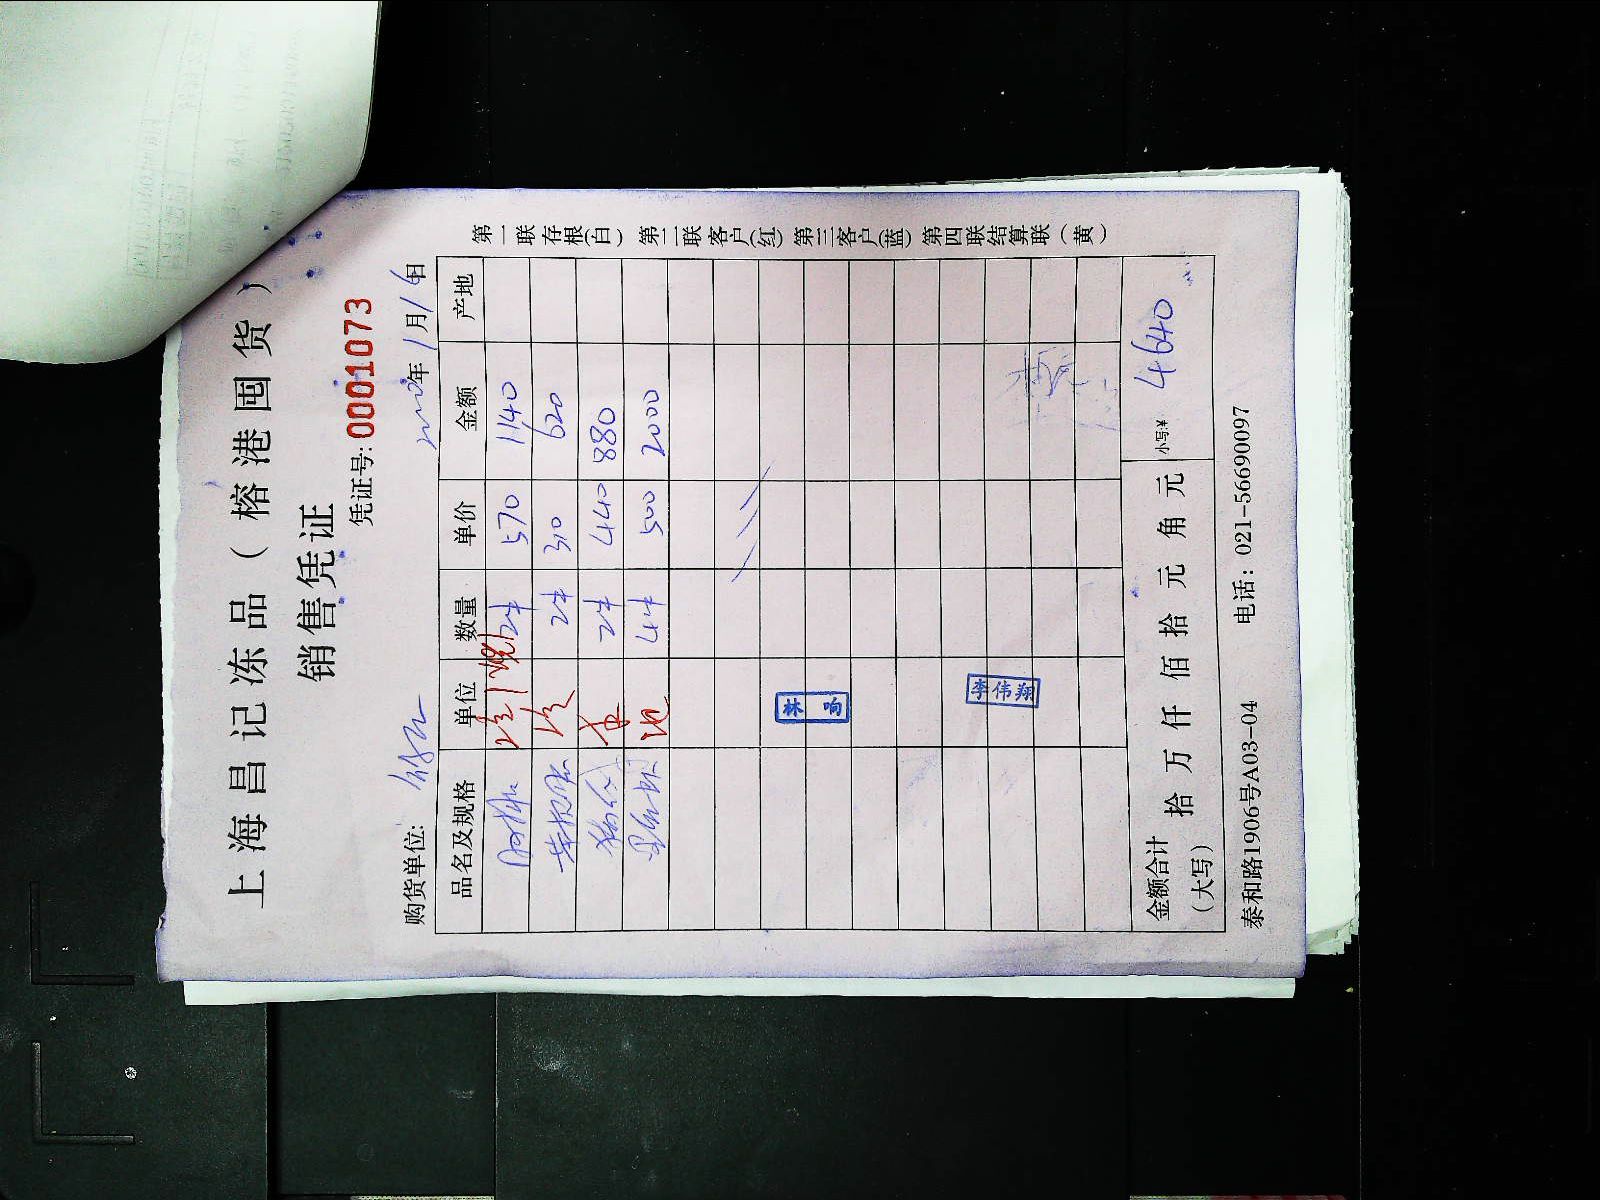 上海昌记冻品（榕港囤货）
销售凭证
凭证号：0001073
购货单位： 2020年1月16日
品名及规格 单位 数量 单价 金额 产地
2件 570 1140
2件 310 620
2件 440 880
4件 500 2000
林响
李伟翔
金额合计（大写） 拾 万 仟 佰 拾 元 角 元 小写:¥ 4640
泰和路1906号A03-04 电话：021-56690097
第一联存根(白) 第二联客户(红) 第三客户(蓝) 第四联结算联（黄）